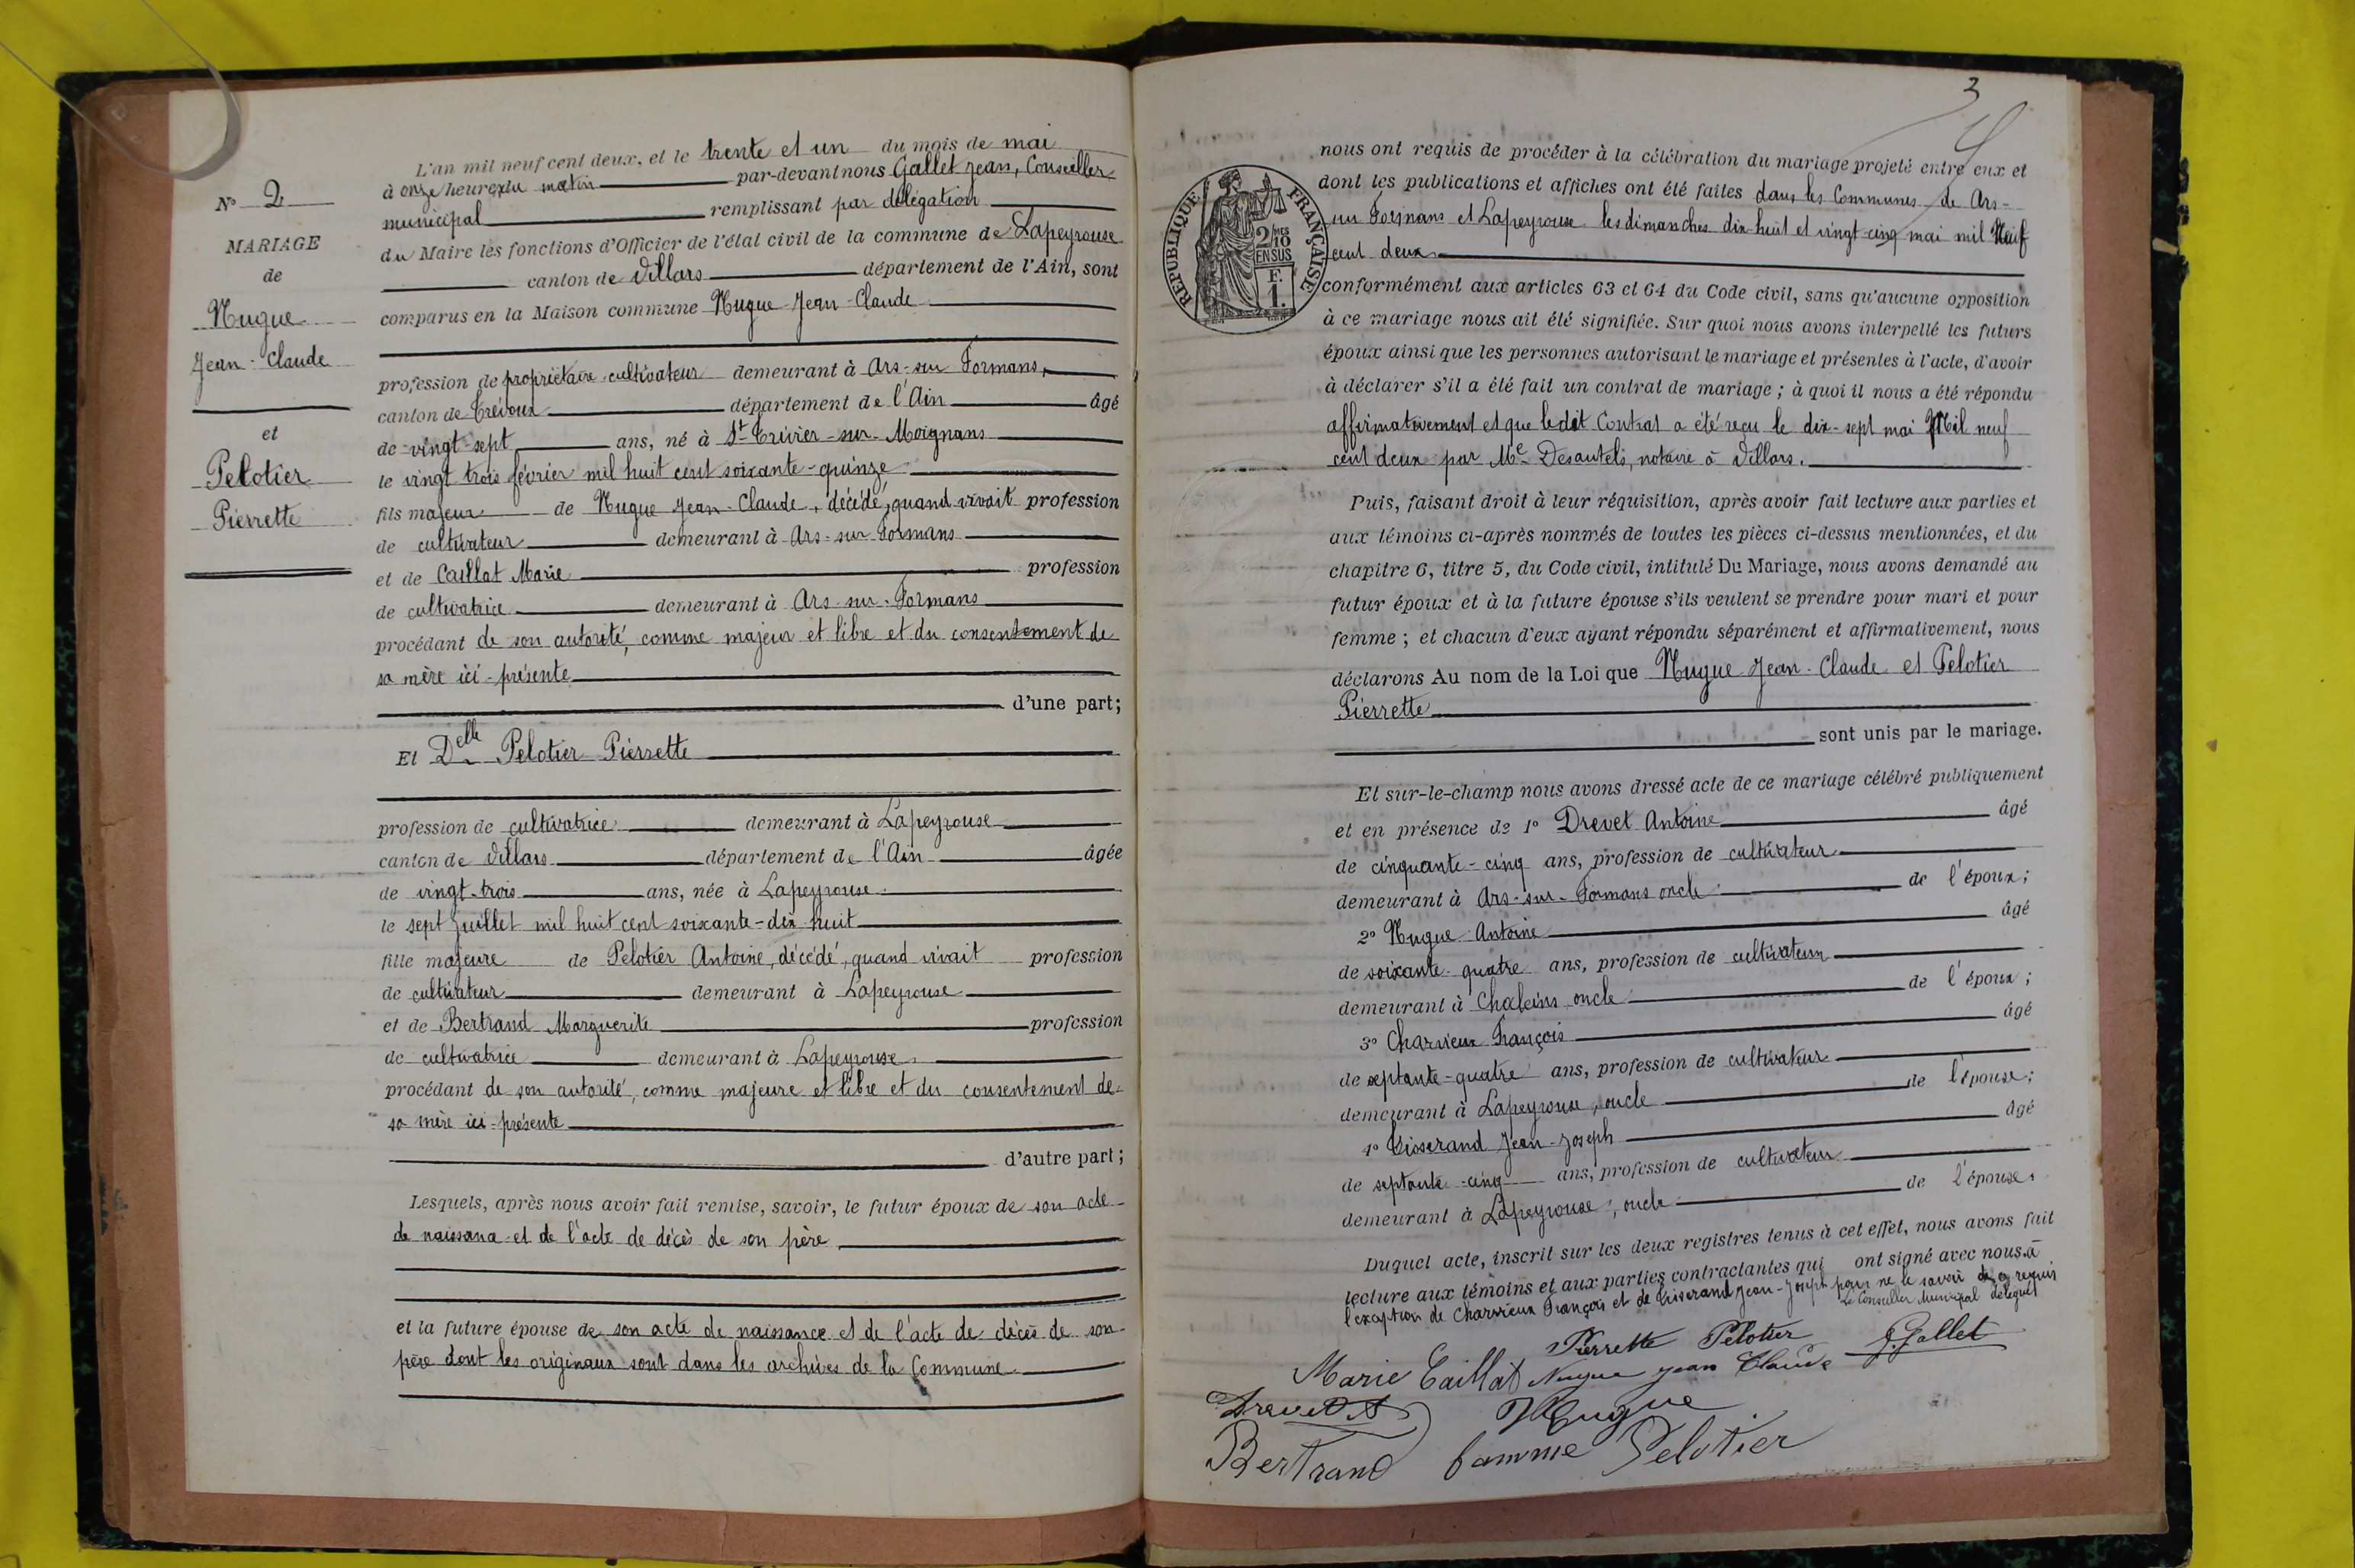 N° 2
MARIAGE
de
Nugue
Jean-Claude
et
Pelotier
Pierrette
L'an mil neuf cent deux, et le trente et un du mois de mai
à onze heures du matin par-devant nous Gallet Jean, Conseiller
municipal remplissant par délégation
du Maire les fonctions d'Officier de l'état civil de la commune de Lapeyrouse
canton de Villars département de l'Ain, sont
comparus en la Maison commune Nugue Jean-Claude
profession de propriétaire cultivateur demeurant à Ars-sur Formans,
canton de Trévoux département de l'Ain âgé
de vingt-sept ans, né à St Trivier-sur-Moignans
le vingt trois février mil huit cent soixante-quinze
fils majeur de Nugue Jean-Claude, décédé, quand vivait profession
de cultivateur demeurant à Ars-sur Formans
et de Caillat Marie profession
de cultivatrice demeurant à Ars-sur-Formans
procédant de son autorité, comme majeur et libre et du consentement de
sa mère ici-présente
d'une part;
Et Delle Pelotier Pierrette
profession de cultivatrice demeurant à Lapeyrouse
canton de Villars département de l'Ain âgée
de vingt-trois ans, née à Lapeyrouse
le sept Juillet mil huit cent soixante-dix-huit
fille majeure de Pelotier Antoine, décédé, quand vivait profession
de cultivateur demeurant à Lapeyrouse
et de Bertrand Marguerite profession
de cultivatrice demeurant à Lapeyrouse
procédant de son autorité, comme majeure et libre et du consentement de
sa mère ici-présente
d'autre part;
Lesquels, après nous avoir fait remise, savoir, le futur époux de son acte
de naissance et de l'acte de décès de son père
et la future épouse de son acte de naissance et de l'acte de décès de son
père dont les originaux sont dans les archives de la Commune
3
RÉPUBLIQUE FRANÇAISE
2/10
EN SUS
F.
1.
nous ont requis de procéder à la célébration du mariage projeté entre eux et
dont les publications et affiches ont été faites dans les Communes de Ars-
sur Formans et Lapeyrouse les dimanches dix-huit et vingt-cinq mai mil Neuf
cent deux
conformément aux articles 63 et 64 du Code civil, sans qu'aucune opposition
à ce mariage nous ait été signifiée. Sur quoi nous avons interpellé les futurs
époux ainsi que les personnes autorisant le mariage et présentes à l'acte, d'avoir
à déclarer s'il a été fait un contrat de mariage; à quoi il nous a été répondu
affirmativement et que ledit Contrat a été reçu le dix-sept mai Mil neuf
cent deux par Me Desautels, notaire à Villars.
Puis, faisant droit à leur réquisition, après avoir fait lecture aux parties et
aux témoins ci-après nommés de toutes les pièces ci-dessus mentionnées, et du
chapitre 6, titre 5, du Code civil, intitulé Du Mariage, nous avons demandé au
futur époux et à la future épouse s'ils veulent se prendre pour mari et pour
femme; et chacun d'eux ayant répondu séparément et affirmativement, nous
déclarons Au nom de la Loi que Nugue Jean-Claude et Pelotier
Pierrette
sont unis par le mariage.
Et sur-le-champ nous avons dressé acte de ce mariage célébré publiquement
et en présence de 1° Drevet Antoine âgé
de cinquante-cinq ans, profession de cultivateur
demeurant à Ars-sur-Formans oncle de l'époux;
2° Nugue Antoine âgé
de soixante-quatre ans, profession de cultivateur
demeurant à Chaleins oncle de l'époux;
3° Charvieux François âgé
de septante-quatre ans, profession de cultivateur
demeurant à Lapeyrouse, oncle de l'épouse;
4° Tisserand Jean-Joseph âgé
de septante-cinq ans, profession de cultivateur
demeurant à Lapeyrouse, oncle de l'épouse.
Duquel acte, inscrit sur les deux registres tenus à cet effet, nous avons fait
lecture aux témoins et aux parties contractantes qui ont signé avec nous à
l'exception de Charvieux François et de Tisserand Jean-Joseph pour ne le savoir de ce requis
Le Conseiller Municipal délégué
Pierrette Pelotier
J. Gallet
Marie Caillat Nugue jean Claude
Drevet A
Nugue
Bertrand famme Pelotier